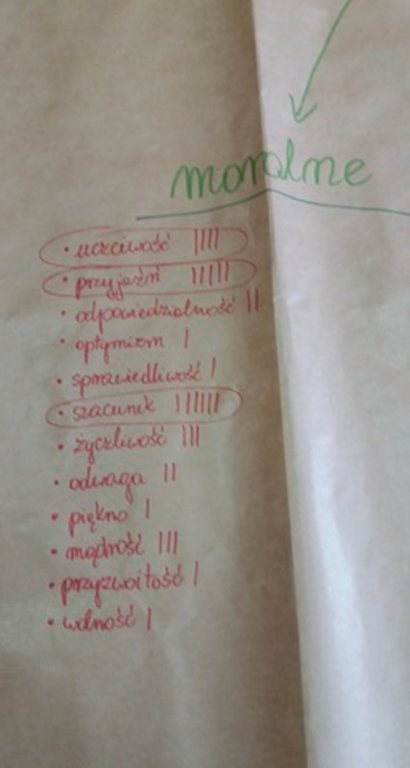 moralne
• uczciwość ||||
• przyjaźń |||||
• odpowiedzialność ||
• optymizm |
• sprawiedliwość |
• szacunek ||||||
• życzliwość |||
• odwaga ||
• piękno |
• mądrość |||
• przyzwoitość |
• wolność |